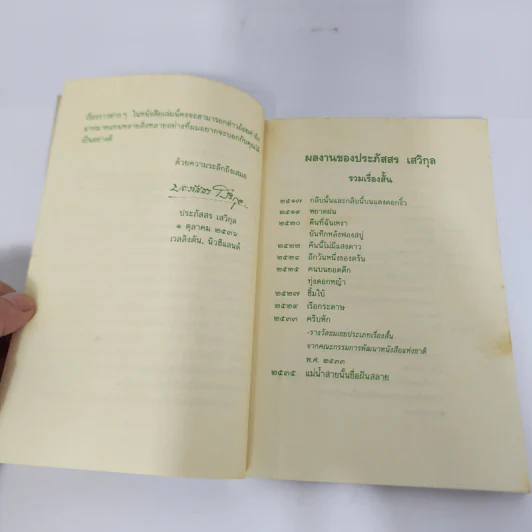 เรื่องราวต่าง ๆ ในหนังสือเล่มนี้คงจะสามารถกล่าวถ้อยคำอื่น
มากมายแทนหลายสิ่งหลายอย่างที่ผมอยากจะบอกกับคุณได้
เป็นอย่างดี
ด้วยความระลึกถึงเสมอ
ประภัสสร เสวิกุล
๑ ตุลาคม ๒๕๓๖
เวลลิงตัน, นิวซีแลนด์
ผลงานของประภัสสร เสวิกุล
รวมเรื่องสั้น
๒๕๑๗ กลีบนั้นและกลีบนี้บนแดงดอกงิ้ว
๒๕๑๙ หยาดฝน
๒๕๒๐ คืนที่ฉันเหงา
บันทึกหลังฟองสบู่
๒๕๒๒ คืนนี้ไม่มีแสงดาว
๒๕๒๔ อีกวันหนึ่งของตรัน
๒๕๒๕ คนบนยอดตึก
ทุ่งดอกหญ้า
๒๕๒๗ ขี้มใบ้
๒๕๒๙ เรือกระดาษ
๒๕๓๓ ครีบหัก
-รางวัลชมเชยประเภทเรื่องสั้น
จากคณะกรรมการพัฒนาหนังสือแห่งชาติ
พ.ศ. ๒๕๓๓
๒๕๓๕ แม่น้ำสายนั้นชื่อฝันสลาย